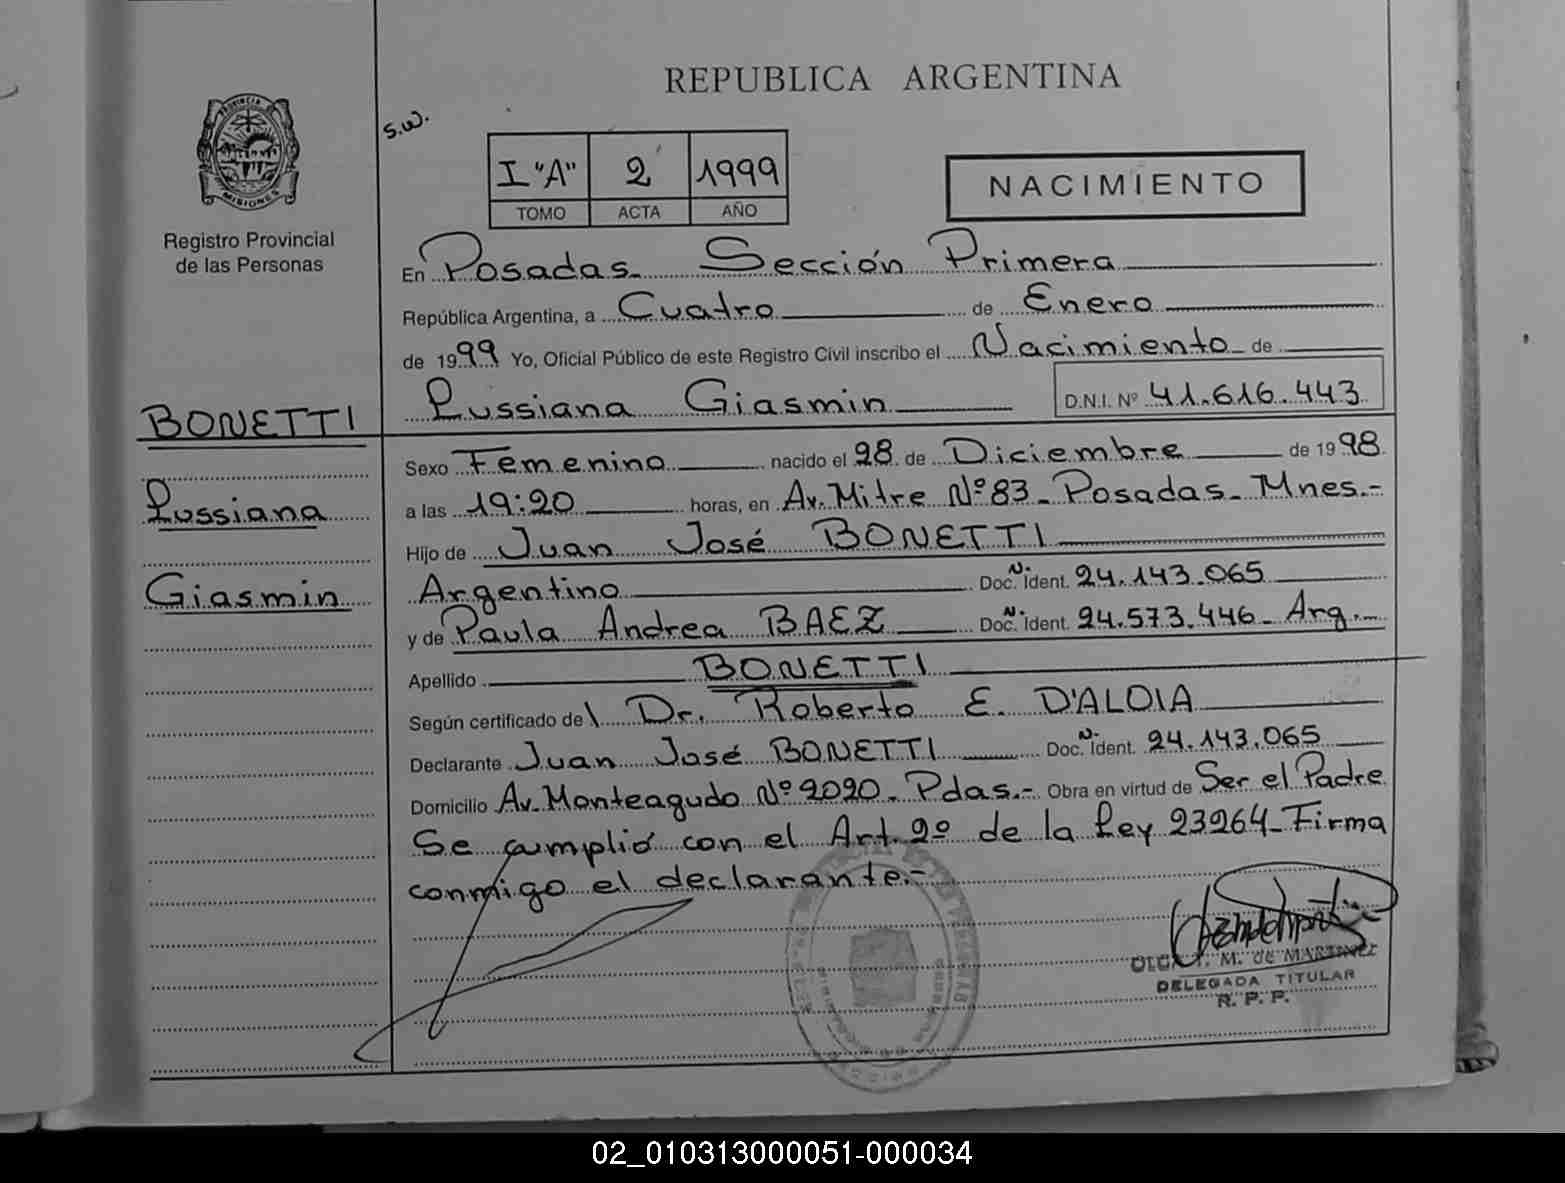 REPUBLICA ARGENTINA
S.W.
I "A" 2 1999
TOMO ACTA AÑO
NACIMIENTO
PROVINCIA DE
MISIONES
Registro Provincial
de las Personas
En Posadas - Sección Primera
República Argentina, a Cuatro de Enero
de 1999 Yo, Oficial Público de este Registro Civil inscribo el Nacimiento de
Lussiana Giasmin D.N.I. Nº 41.616.443
BONETTI
Lussiana
Giasmin
Sexo Femenino nacido el 28 de Diciembre de 1998
a las 19:20 horas, en Av. Mitre Nº 83 - Posadas - Mnes.-
Hijo de Juan José BONETTI
Argentino Doc. N. Ident. 24.143.065
y de Paula Andrea BAEZ Doc. N. Ident. 24.573.446 - Arg.-
Apellido BONETTI
Según certificado del Dr. Roberto E. D'ALOIA
Declarante Juan José BONETTI Doc. N. Ident. 24.143.065
Domicilio Av. Monteagudo Nº 2020 - Pdas.- Obra en virtud de Ser el Padre
Se cumplió con el Art. 2º de la Ley 23264 - Firma
conmigo el declarante.-
M. de MARTINEZ
DELEGADA TITULAR
R. P. P.
02_010313000051-000034